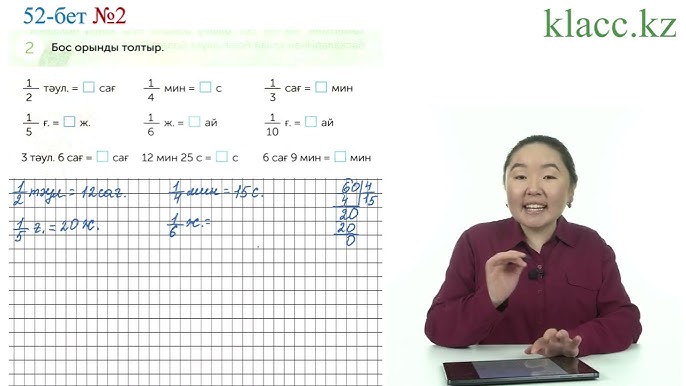 52-бет №2
klacc.kz
2 Бос орынды толтыр.
1/2 тәул. = □ сағ 1/4 мин = □ с 1/3 сағ = □ мин
1/5 ғ. = □ ж. 1/6 ж. = □ ай 1/10 ғ. = □ ай
3 тәул. 6 сағ = □ сағ 12 мин 25 с = □ с 6 сағ 9 мин = □ мин
1/2 тәул = 12 сағ. 1/4 мин = 15 с. 60 | 4
4 | 15
1/5 ғ. = 20 ж. 1/6 ж. = 20
20
0